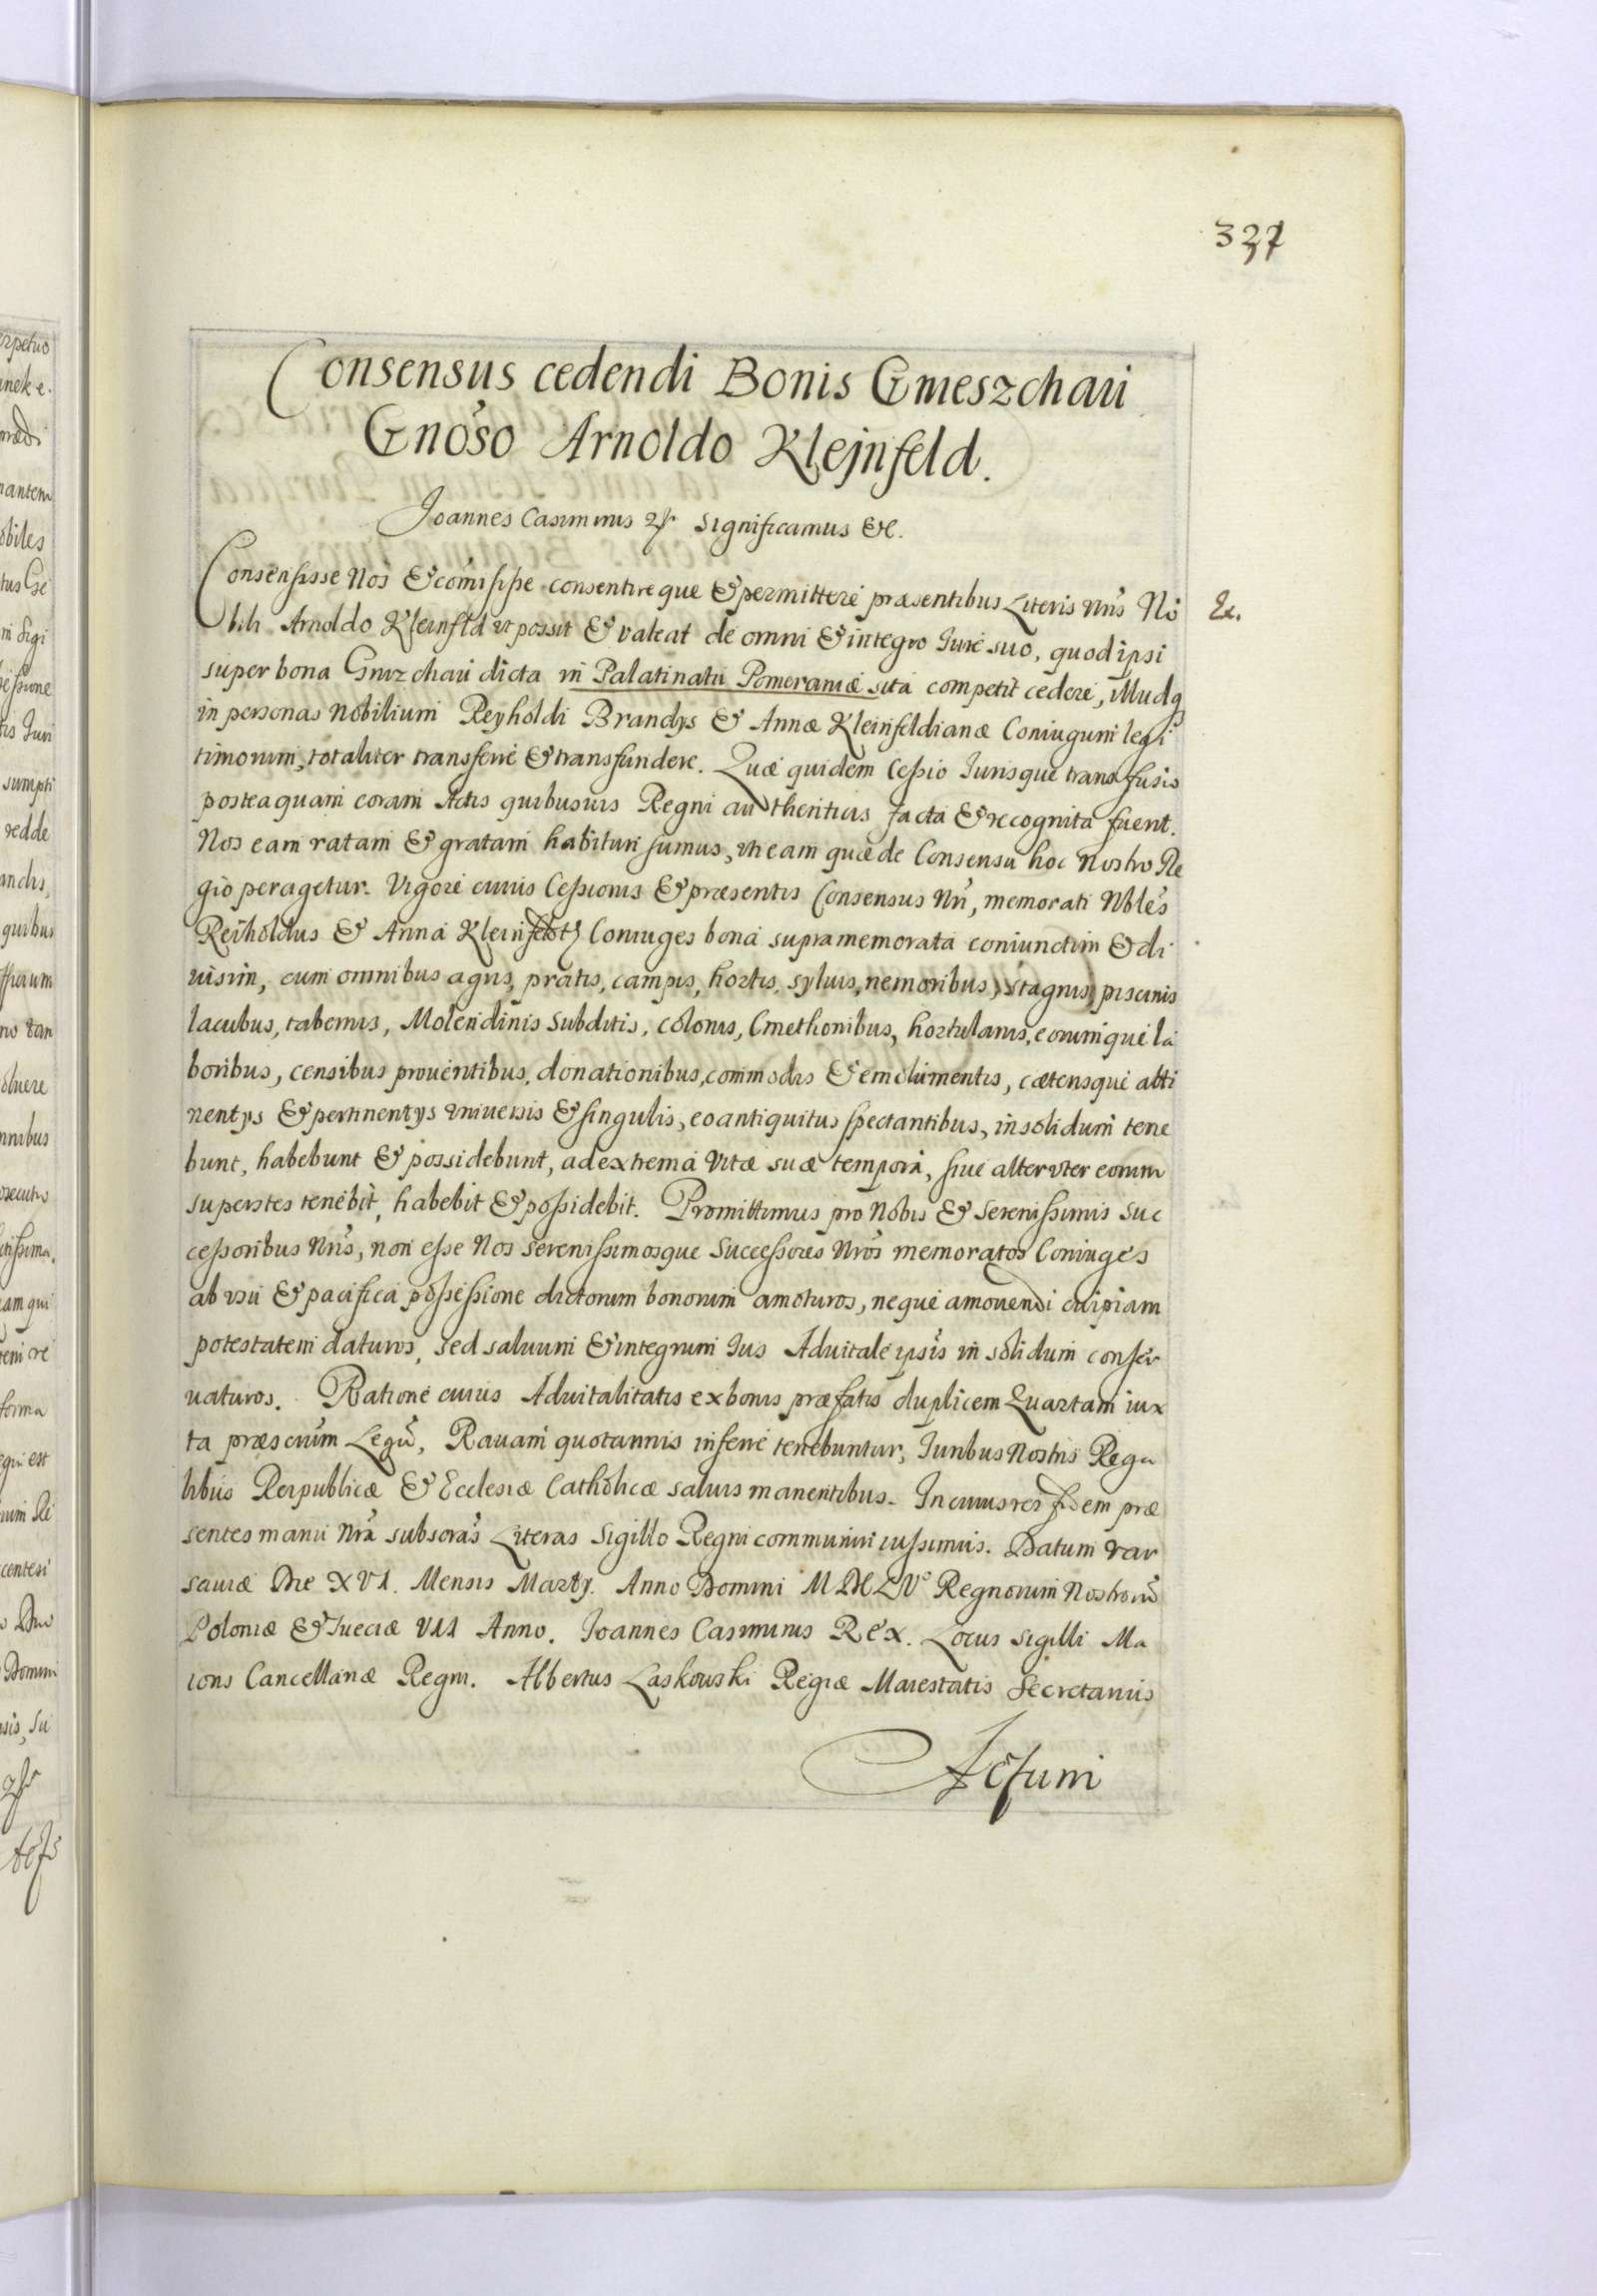 337
Consensus cedendi Bonis Gmeszchaii
Gnoso Arnoldo Klejnfeld.
Joannes Casimirus significamus &c.
Consensisse Nos & comisisse consentireque & permittere præsentibus Literis Nris No
Ex.
bili Arnoldo Kleinfld vt possit & valeat de omni & integro Iure suo, quod ipsi
super bona Gmrzchaii dicta in Palatinatu Pomeraniæ sita competit cedere, illudq
in personas Nobilium Reyholdi Brandys & Annæ Kleinfeldianæ Coniugum legi
timorum, totaliter transferre & transfundere. Quæ quidem Cessio Iurisque transfusio
posteaquam coram Actis quibusuis Regni authenticis facta & recognita fuerit.
Nos eam ratam & gratam habituri sumus, vti eam quæ de Consensu hoc Nostro Re
gio peragetur. Vigore cuius Cessionis & præsentis Consensus Nri, memorati Nbles
Reiholdus & Anna Coniuges bona supramemorata coniunctim & di
uisim, cum omnibus agris, pratis, campis, hortis, syluis, nemoribus, stagnis, piscinis
lacubus, tabernis, Molendinis Subditis, colonis, Cmethonibus, hortulanis, eorumque la
boribus, censibus prouentibus, donationibus, commodis & emolumentis, cæterisque atti
nentijs & pertinentijs vniuersis & singulis, eo antiquitus spectantibus, in solidum tene
bunt, habebunt & possidebunt, ad extrema vitæ suæ tempora, siue alteruter eorum
superstes tenebit, habebit & possidebit. Promittimus pro Nobis & Serenissimis Suc
cessoribus Nris, non esse Nos Serenissimosque Successores Nros memoratos Coniuges
ab vsu & pacifica possessione dictorum bonorum amoturos, neque amouendi cuipiam
potestatem daturos, sed saluum & integrum Ius Aduitale ipsis in solidum conser
uaturos. Ratione cuius Aduitalitatis ex bonis præfatis duplicem Quartam iux
ta præscrium Legu, Rauam quotannis inferre tenebuntur, Iuribus Nostris Rega
libus Reipublicæ & Ecclesiæ Catholicæ saluis manentibus. In cuius rei fidem præ
sentes manu Nra subscras Literas Sigillo Regni communiri iussimus. Datum Var
sauiæ Die XVI. Mensis Martij. Anno Domini MDCLVo Regnorum Nostroru
Poloniæ & Sueciæ VII Anno. Joannes Casimirus Rex. Locus Sigilli Ma
ioris Cancellariæ Regni. Albertus Laskowski Regiæ Maiestatis Secretarius
Actum